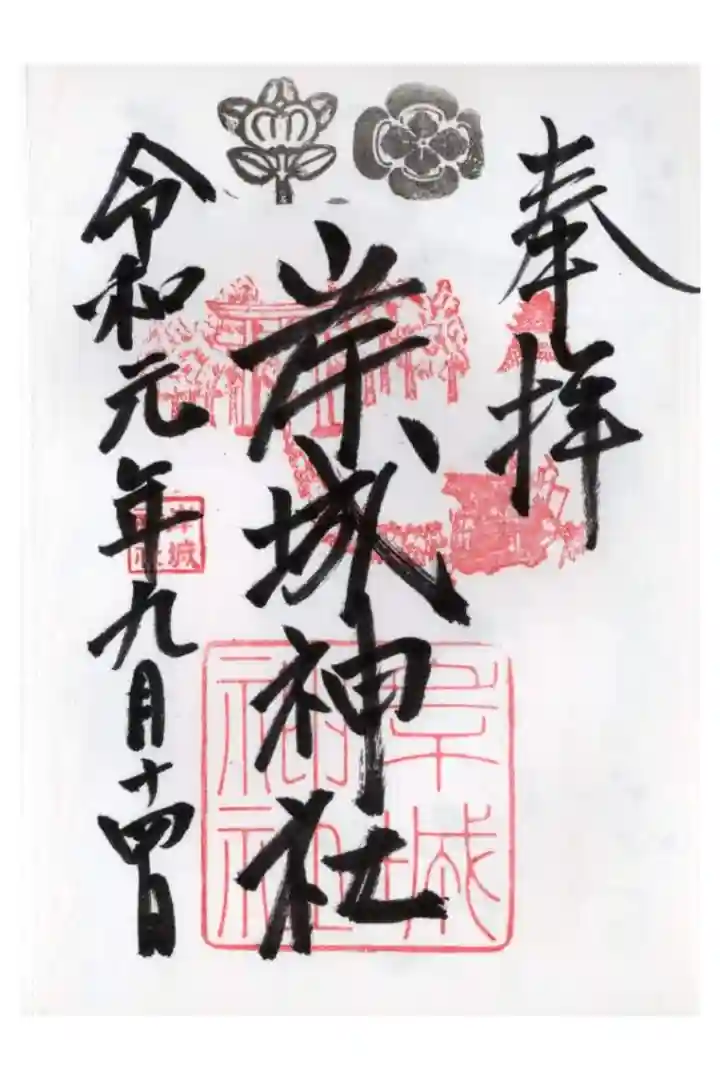 奉拝
岸城神社
令和元年九月十四日
岸城
神社
岸城
神社